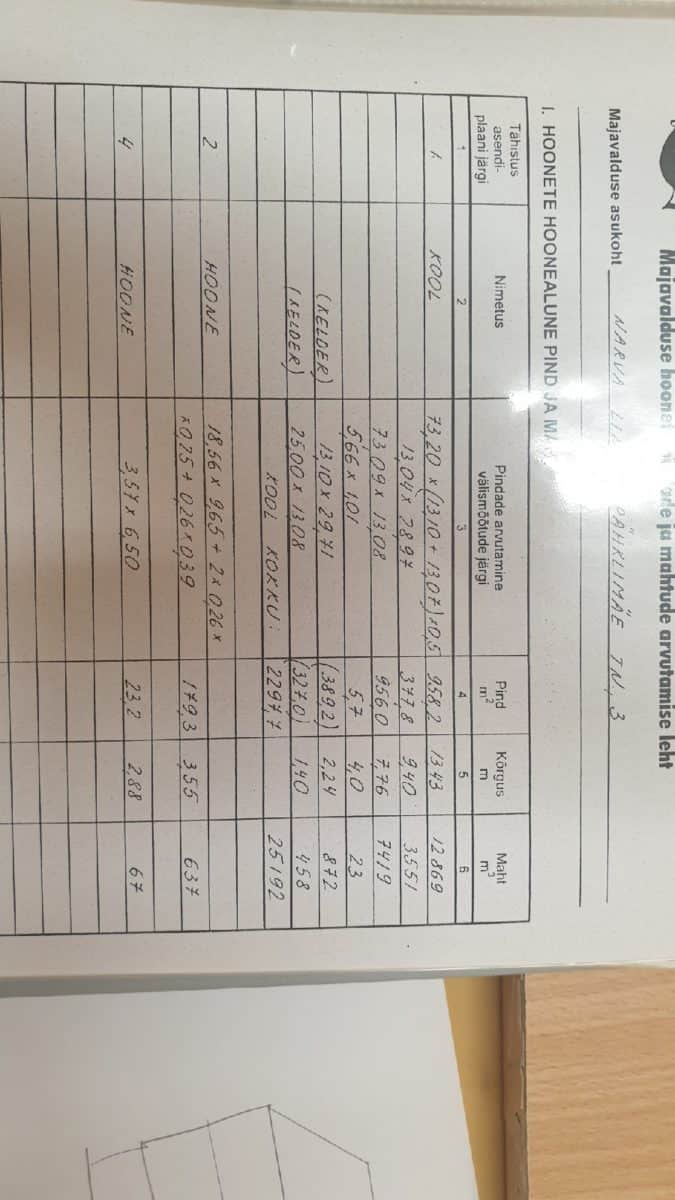 Majavalduse hoone ja mahtude arvutamise leht
Majavalduse asukoht NARVA PÄHKLIMÄE TN, 3
I. HOONETE HOONEALUNE PIND JA
Tähistus asendi-plaani järgi Nimetus Pindade arvutamine välismõõtude järgi Pind m² Kõrgus m Maht m³
1 2 3 4 5 6
1. KOOL 73,20 x (13,10 + 13,07) x 0,5 958,2 13,43 12869
13,04 x 28,97 377,8 9,40 3551
73,09 x 13,08 956,0 7,76 7419
5,66 x 1,01 5,7 4,0 23
(KELDER) 13,10 x 29,71 (389,2) 2,24 872
(KELDER) 25,00 x 13,08 (327,0) 1,40 458
KOOL KOKKU: 2297,7 25192
2 HOONE 18,56 x 9,65 + 2 x 0,26 x
x 0,25 + 0,26 x 0,39 179,3 3,55 637
4 HOONE 3,57 x 6,50 23,2 2,88 67